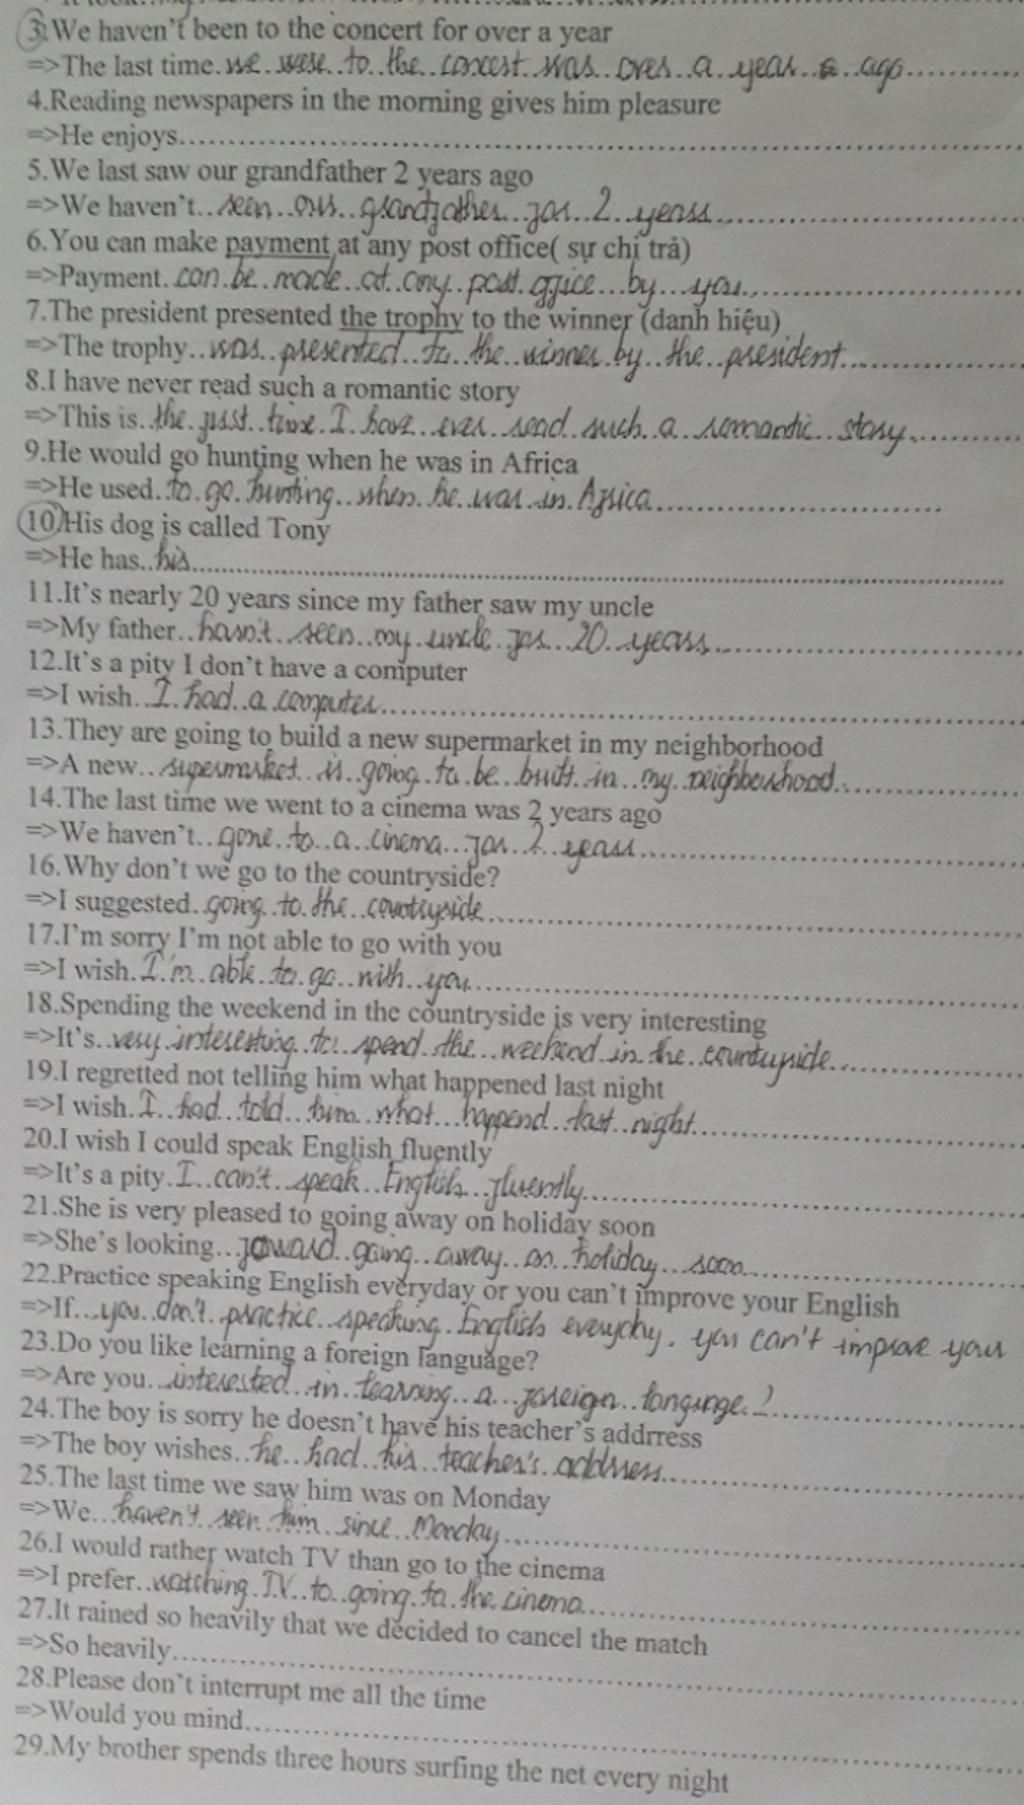 3.We haven't been to the concert for over a year
=>The last time we were to the concert was over a year ago
4.Reading newspapers in the morning gives him pleasure
=>He enjoys
5.We last saw our grandfather 2 years ago
=>We haven't seen our grandfather for 2 years
6.You can make payment at any post office( sự chi trả)
=>Payment can be made at any post office by you
7.The president presented the trophy to the winner (danh hiệu)
=>The trophy was presented to the winner by the president
8.I have never read such a romantic story
=>This is the first time I have ever read such a romantic story
9.He would go hunting when he was in Africa
=>He used to go hunting when he was in Africa
10.His dog is called Tony
=>He has his
11.It's nearly 20 years since my father saw my uncle
=>My father hasn't seen my uncle for 20 years
12.It's a pity I don't have a computer
=>I wish I had a computer
13.They are going to build a new supermarket in my neighborhood
=>A new supermarket is going to be built in my neighbourhood
14.The last time we went to a cinema was 2 years ago
=>We haven't gone to a cinema for 2 years
16.Why don't we go to the countryside?
=>I suggested going to the countryside
17.I'm sorry I'm not able to go with you
=>I wish I'm able to go with you
18.Spending the weekend in the countryside is very interesting
=>It's very interesting to spend the weekend in the countryside
19.I regretted not telling him what happened last night
=>I wish I had told him what happend last night
20.I wish I could speak English fluently
=>It's a pity I can't speak English fluently
21.She is very pleased to going away on holiday soon
=>She's looking forward going away on holiday soon
22.Practice speaking English everyday or you can't improve your English
=>If you don't practice speaking English everyday, you can't improve your
23.Do you like learning a foreign language?
=>Are you interested in learning a foreign language?
24.The boy is sorry he doesn't have his teacher's addrress
=>The boy wishes he had his teacher's address
25.The last time we saw him was on Monday
=>We haven't seen him since Monday
26.I would rather watch TV than go to the cinema
=>I prefer watching TV to going to the cinema
27.It rained so heavily that we decided to cancel the match
=>So heavily
28.Please don't interrupt me all the time
=>Would you mind
29.My brother spends three hours surfing the net every night